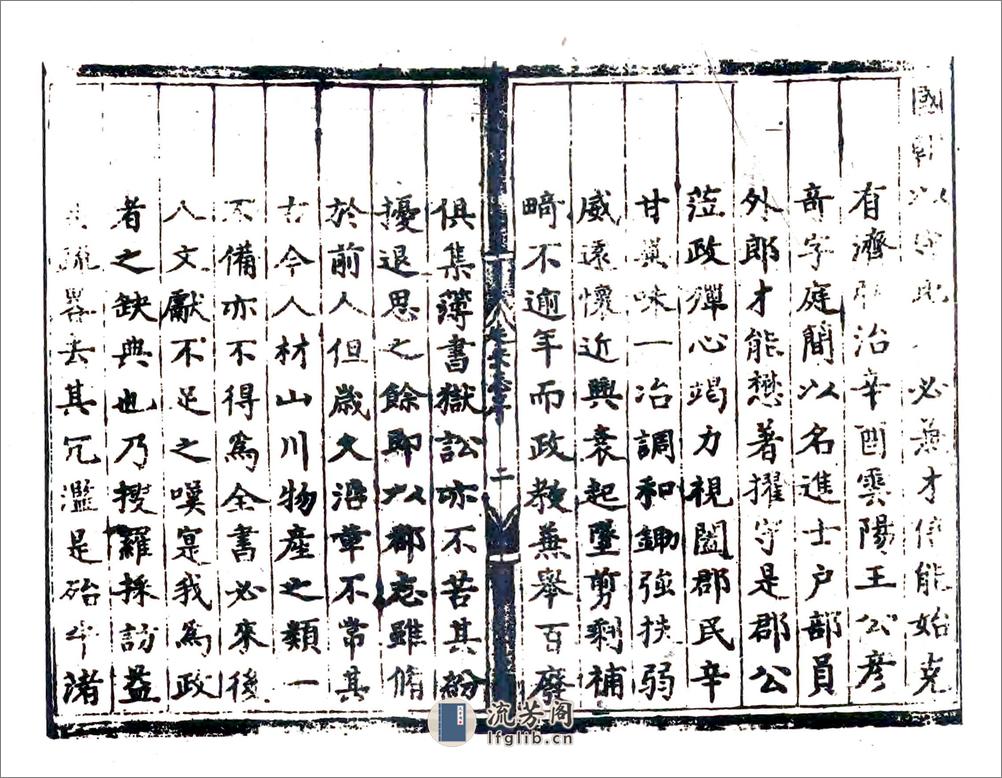 國朝以 必兼才俱能始克
有濟 治辛酉雲陽王公彥
奇字庭簡以名進士户部員
外郎才能懋著擢守是郡公
蒞政彈心竭力視闔郡民辛
甘異味一冶調和鋤強扶弱
威遠懷近興衰起墜剪剩補
畸不逾年而政教兼舉百廢
二
俱集薄書獄訟亦不苦其紛
擾退思之餘即以郡志雖脩
於前人但歲久湮 不常其
古今人材山川物產之類一
不備亦不得為全書必來後
人文獻不足之嘆寔我為政
者之缺典也乃搜羅採訪益
其疏畧去其冗濫是 諸
流芳阁
lfglib.cn